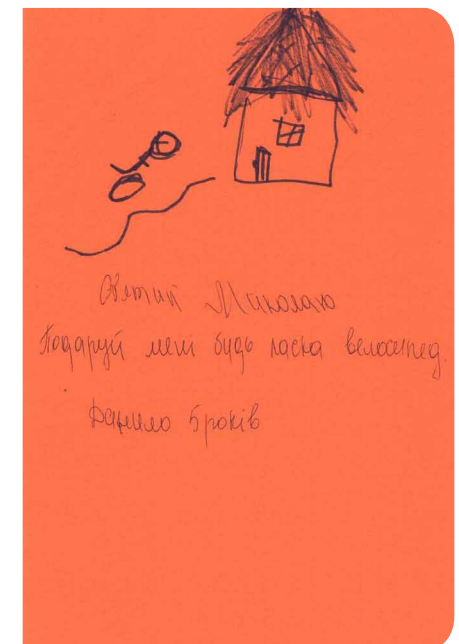 Святий Миколаю
Подаруй мені будь ласка велосипед.
Данило 5 років